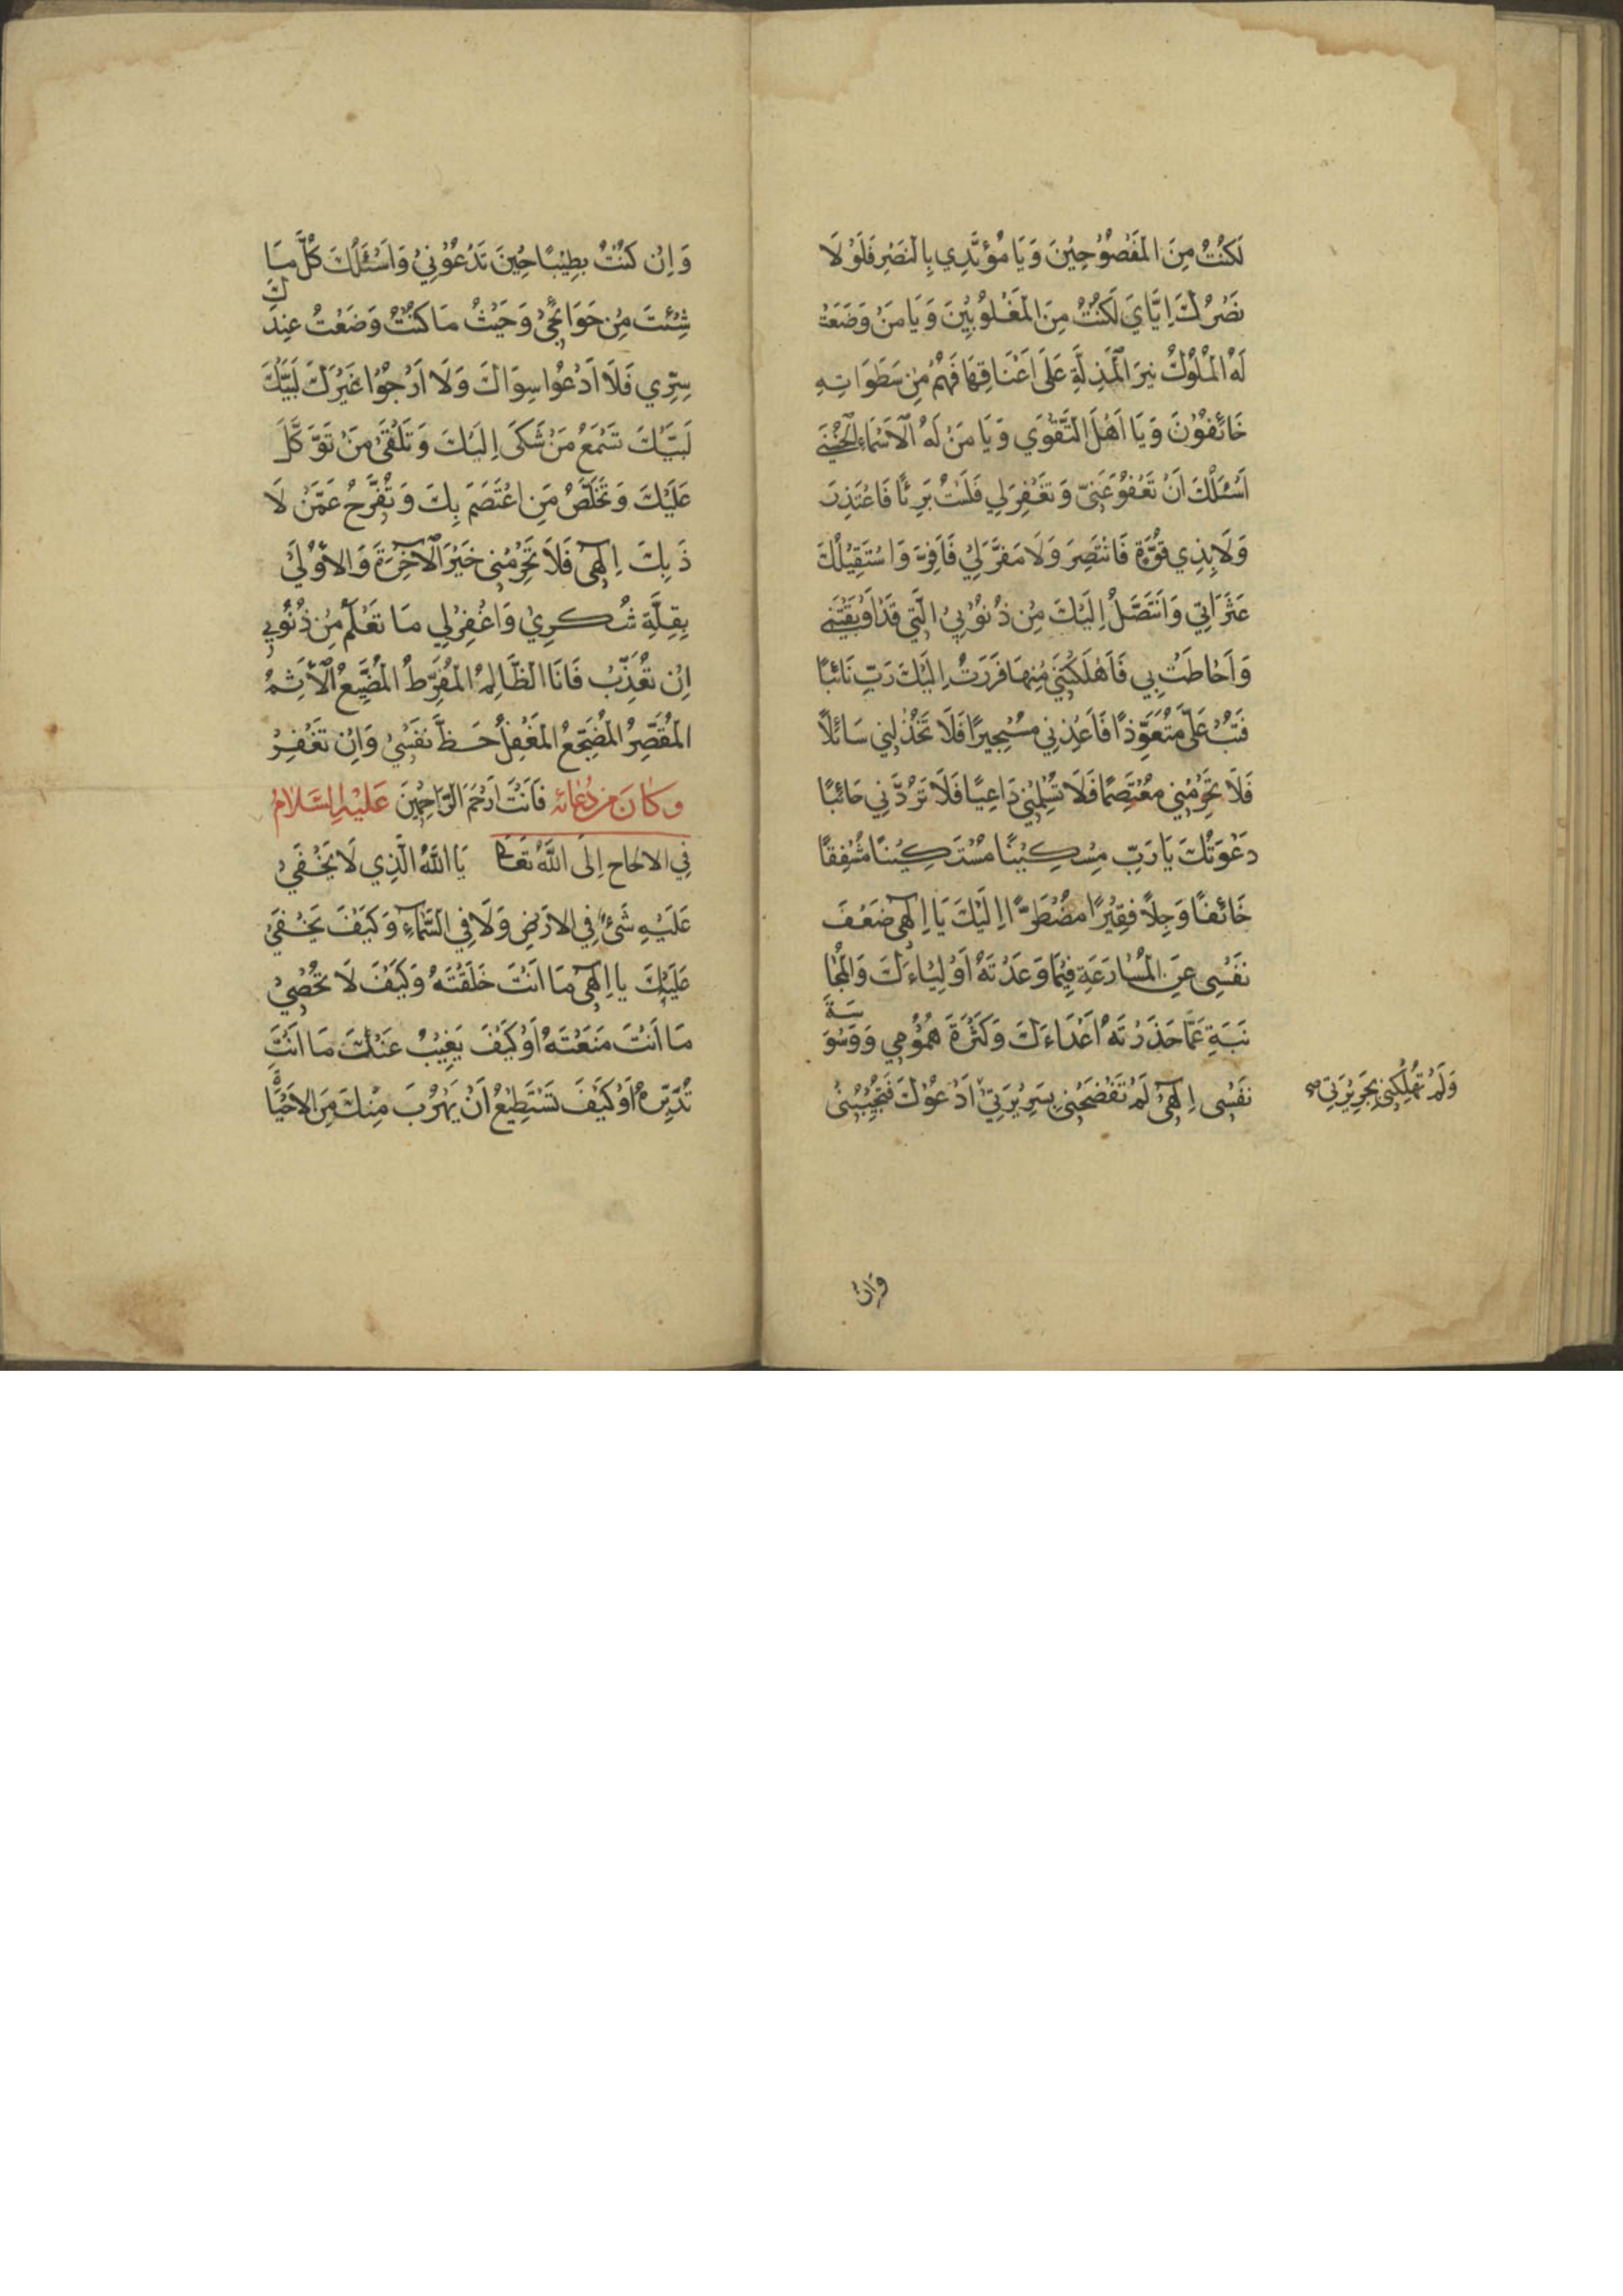 لَكُنْتُ مِنَ الْمَفْضُوحِينَ وَيَا مُؤَيِّدِي بِالنَّصْرِ فَلَوْلَا
نَصْرُكَ اِيَّايَ لَكُنْتُ مِنَ الْمَغْلُوبِينَ وَيَا مَنْ وَضَعَتْ
لَهُ الْمُلُوكُ نِيرَ الْمَذِلَّةِ عَلَى اَعْنَاقِهَا فَهُمْ مِنْ سَطَوَاتِهِ
خَائِفُونَ وَيَا اَهْلَ التَّقْوَي وَيَا مَنْ لَهُ الْاَسْمَاءُ الْحُسْنَى
اَسْئَلُكَ اَنْ تَعْفُوَ عَنِّي وَتَغْفِرَ لِي فَلَسْتُ بَرِيئًا فَاعْتَذِرَ
وَلَا بِذِي قُوَّةٍ فَانْتَصِرَ وَلَا مَفَرَّ لِي فَاَفِرَّ وَاسْتَقِيلُكَ
عَثَرَاتِي وَاَتَنَصَّلُ اِلَيْكَ مِنْ ذُنُوبِي الَّتِي قَدْ اَوْبَقَتْنِي
وَاَحَاطَتْ بِي فَاَهْلَكَتْنِي مِنْهَا فَرَرْتُ اِلَيْكَ رَبِّ تَائِبًا
فَتُبْ عَلَيَّ مُتَعَوِّذًا فَاَعِذْنِي مُسْتَجِيرًا فَلَا تَخْذُلْنِي سَائِلًا
فَلَا تَحْرِمْنِي مُعْتَصِمًا فَلَا تُسْلِمْنِي دَاعِيًا فَلَا تَرُدَّنِي خَائِبًا
دَعَوْتُكَ يَا رَبِّ مِسْكِيْنًا مُسْتَكِيْنًا مُشْفِقًا
خَائِفًا وَجِلًا فَقِيْرًا مُضْطَرًّا اِلَيْكَ يَا اِلٰهِي ضَعْفَ
نَفْسِي عَنِ الْمُسَارَعَةِ فِيْمَا وَعَدْتَهُ اَوْلِيَاءَكَ وَالْمُجَا
نَبَةِ عَمَّا حَذَرْتَهُ اَعْدَاءَكَ وَكَثْرَةَ هُمُوْمِي وَوَسْوَسَةَ
نَفْسِي اِلٰهِي لَمْ تَفْضَحْنِي بِسَرِيْرَتِي اَدْعُوْكَ فَتُجِيْبُنِي
وَلَمْ تُهْلِكْنِي بِجَرِيْرَتِي صح
وَاِنْ
وَاِنْ كُنْتُ بَطِيْئًا حِيْنَ تَدْعُوْنِي وَاَسْئَلُكَ كُلَّ مَا
شِئْتَ مِنْ حَوَائِجِي وَحَيْثُ مَا كُنْتُ وَضَعْتُ عِنْدَكَ
سِرِّي فَلَا اَدْعُوْا سِوَاكَ وَلَا اَرْجُوْا غَيْرَكَ لَبَّيْكَ
لَبَّيْكَ تَسْمَعُ مَنْ شَكَى اِلَيْكَ وَتَلْقَى مَنْ تَوَّكَّلَ
عَلَيْكَ وَتَخَلِّصُ مَنِ اعْتَصَمَ بِكَ وَتُفَرِّحُ عَمَّنْ لَا
ذَ بِكَ اِلٰهِي فَلَا تَحْرِمْنِي خَيْرَ الْآخِرَةِ وَالْاُوْلَى
بِقِلَّةِ شُكْرِيْ وَاغْفِرْ لِي مَا تَعْلَمُ مِنْ ذُنُوْبِي
اِنْ تُعَذِّبْ فَاَنَا الظَّالِمُ الْمُفَرِّطُ الْمُضَيِّعُ الْاَثِمُ
الْمُقَصِّرُ الْمُضَجِّعُ الْمُغْفِلُ حَظَّ نَفْسِيْ وَاِنْ تَغْفِرْ
وكان من دعائه فَاَنْتَ اَرْحَمُ الرَّاحِمِيْنَ عَلَيْهِ السَّلَامُ
فِي الالحاح اِلَى اللّٰهِ تَعَالى يَا اَللّٰهُ الَّذِي لَا يَخْفَى
عَلَيْهِ شَيْءٌ فِي الاَرْضِ وَلَا فِي السَّمَاءِ وَكَيْفَ يَخْفَى
عَلَيْكَ يا اِلٰهِي مَا اَنْتَ خَلَقْتَهُ وَكَيْفَ لَا تُحْصِيْ
مَا اَنْتَ صَنَعْتَهُ اَوْ كَيْفَ يَغِيْبُ عَنْكَ مَا اَنْتَ
تُدَبِّرُهُ اَوْ كَيْفَ تَسْتَطِيْعُ اَنْ يَهْرُبَ مِنْكَ مَنْ لَاحَيٰوةَ